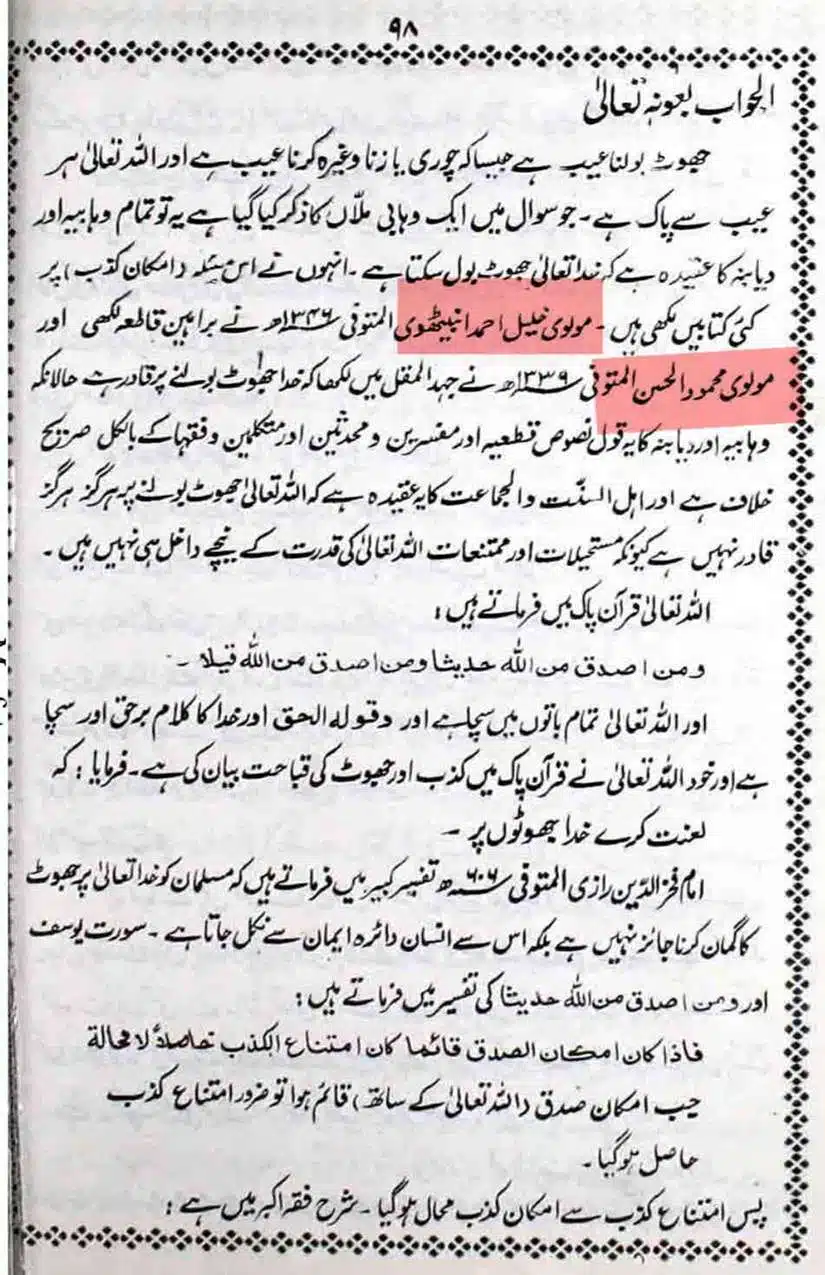 ۹۸
الجواب بعونہ تعالیٰ
جھوٹ بولنا عیب ہے جیسا کہ چوری یا زنا وغیرہ کرنا عیب ہے اور اللہ تعالیٰ ہر
عیب سے پاک ہے۔ جو سوال میں ایک وہابی ملّاں کا ذکر کیا گیا ہے یہ تو تمام وہابیہ اور
دیابنہ کا عقیدہ ہے کہ خدا تعالیٰ جھوٹ بول سکتا ہے۔ انہوں نے اس مسئلہ (امکان کذب) پر
کئی کتابیں لکھی ہیں۔ مولوی خلیل احمد انبیٹھوی المتوفی ۱۳۴۶ھ نے براہین قاطعہ لکھی اور
مولوی محمود الحسن المتوفی ۱۳۳۹ھ نے جہد المقل میں لکھا کہ خدا جھوٹ بولنے پر قادر ہے حالانکہ
وہابیہ اور دیابنہ کا یہ قول نصوص قطعیہ اور مفسرین و محدثین اور متکلمین و فقہا کے بالکل صریح
خلاف ہے اور اہل السنّت والجماعت کا یہ عقیدہ ہے کہ اللہ تعالیٰ جھوٹ بولنے پر ہرگز ہرگز
قادر نہیں ہے کیونکہ مستحیلات اور ممتنعات اللہ تعالیٰ کی قدرت کے نیچے داخل ہی نہیں ہیں۔
اللہ تعالیٰ قرآن پاک میں فرماتے ہیں:
ومن اصدق من اللہ حدیثا ومن اصدق من اللہ قیلا۔
اور اللہ تعالیٰ تمام باتوں میں سچا ہے اور وقولہ الحق اور خدا کا کلام برحق اور سچا
ہے اور خود اللہ تعالیٰ نے قرآن پاک میں کذب اور جھوٹ کی قباحت بیان کی ہے۔ فرمایا: کہ
لعنت کرے خدا جھوٹوں پر۔
امام فخر الدین رازی المتوفی ۶۰۶ھ تفسیر کبیر میں فرماتے ہیں کہ مسلمان کو خدا تعالیٰ پر جھوٹ
کا گمان کرنا جائز نہیں ہے بلکہ اس سے انسان دائرہ ایمان سے نکل جاتا ہے۔ سورت یوسف
اور ومن اصدق من اللہ حدیثا کی تفسیر میں فرماتے ہیں:
فاذا کان امکان الصدق قائما کان امتناع الکذب حاصلاً لا محالة
جب امکان صدق (اللہ تعالیٰ کے ساتھ) قائم ہوا تو ضرور امتناع کذب
حاصل ہو گیا۔
پس امتناع کذب سے امکان کذب محال ہو گیا۔ شرح فقہ اکبر میں ہے: